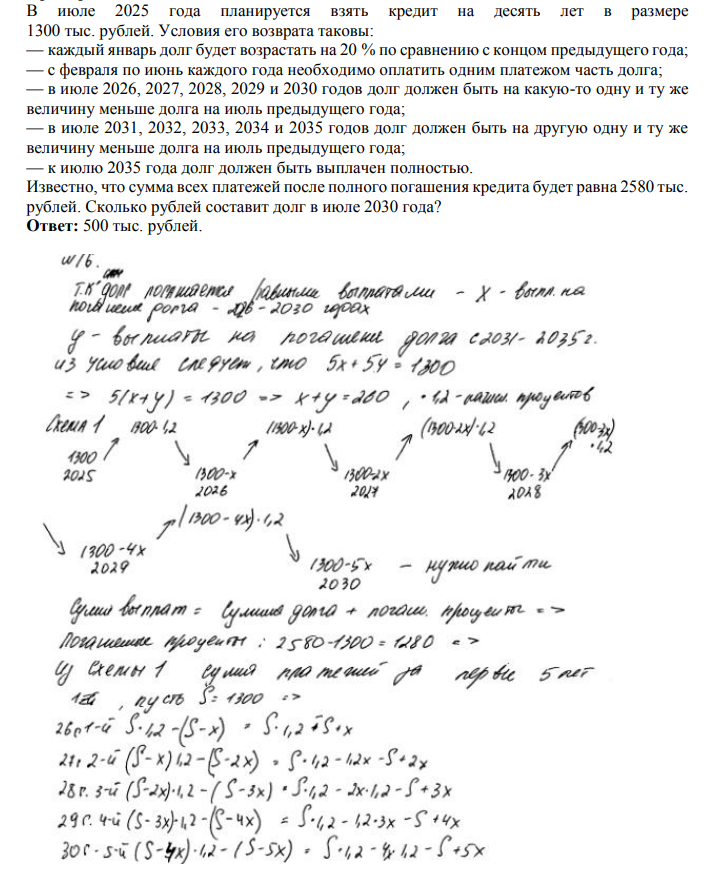 В июле 2025 года планируется взять кредит на десять лет в размере
1300 тыс. рублей. Условия его возврата таковы:
— каждый январь долг будет возрастать на 20 % по сравнению с концом предыдущего года;
— с февраля по июнь каждого года необходимо оплатить одним платежом часть долга;
— в июле 2026, 2027, 2028, 2029 и 2030 годов долг должен быть на какую-то одну и ту же
величину меньше долга на июль предыдущего года;
— в июле 2031, 2032, 2033, 2034 и 2035 годов долг должен быть на другую одну и ту же
величину меньше долга на июль предыдущего года;
— к июлю 2035 года долг должен быть выплачен полностью.
Известно, что сумма всех платежей после полного погашения кредита будет равна 2580 тыс.
рублей. Сколько рублей составит долг в июле 2030 года?
Ответ: 500 тыс. рублей.
№16.
Т.к долг погашается равными выплатами – x – выпл. на
погашение долга – 2026 – 2030 годах
y – выплаты на погашени долга с 2031 – 2035 г.
из условия следует, что 5x + 5y = 1300
=> 5(x+y) = 1300 => x+y = 260 , · 1,2 – проценты
Схема 1 1300·1,2 (1300-x)·1,2 (1300-2x)·1,2 (1300-3x)
·1,2
1300 1300-x 1300-2x 1300-3x
2025 2026 2027 2028
(1300-4x)·1,2
1300-4x 1300-5x – нужно найти
2029 2030
Сумма выплат = Сумма долга + погаш. проценты =>
Погашенные проценты : 2580-1300 = 1280 =>
Из Схемы 1 сумма платежей за первые 5 лет
, пусть S = 1300 =>
26г. 1-й S·1,2 – (S-x) = S·1,2 S+x
27г. 2-й (S-x)1,2 – (S-2x) = S·1,2 – 1,2x – S + 2x
28г. 3-й (S-2x)·1,2 – (S-3x) = S·1,2 – 2x·1,2 – S + 3x
29г. 4-й (S-3x)·1,2 – (S-4x) = S·1,2 – 1,2·3x – S + 4x
30г – 5-й (S-4x)·1,2 – (S-5x) = S·1,2 – 4x·1,2 – S + 5x